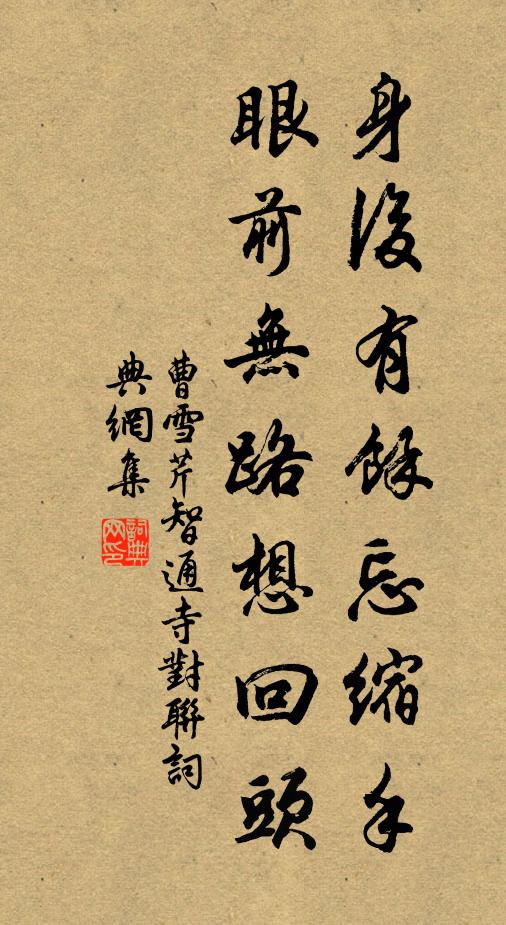 身後有餘忘縮手
眼前無路想回頭
曹雪芹智通寺對聯詞
典網集
詞典网印